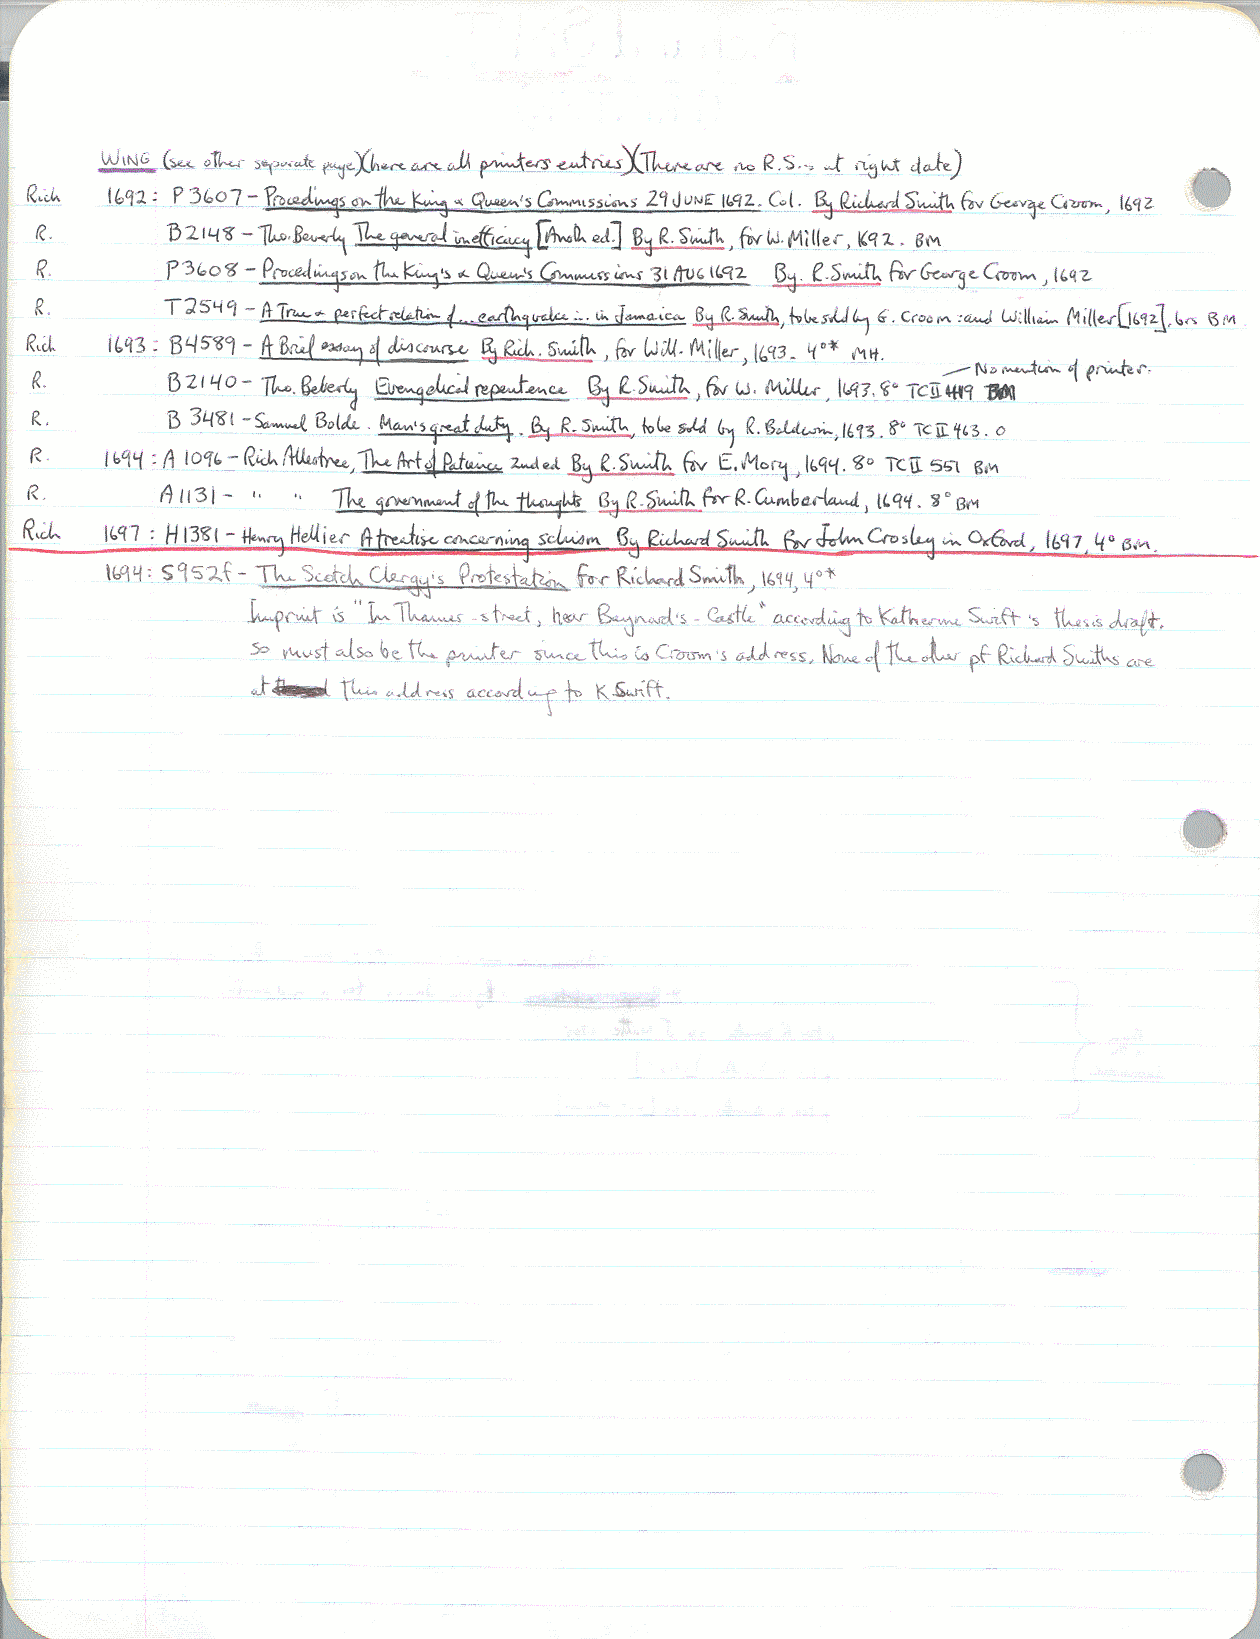 WING (see other separate page)(here are all printers entries)(There are no R.S.'s at right date)
Rich 1692: P3607 - Procedings on the King & Queen's Commissions 29 JUNE 1692. Col. By Richard Smith for George Croom, 1692
R. B2148 - Tho. Beverly The general inefficacy [Anoth ed.] By R. Smith, for W. Miller, 1692. BM
R. P3608 - Procedings on the King's & Queen's Commissions 31 AUG 1692 By. R. Smith for George Croom, 1692
R. T2549 - A True & perfect relation of... earthquake... in Jamaica By R. Smith, to be sold by G. Croom: and William Miller [1692]. brs BM
Rich 1693: B4589 - A Brief essay of discourse By Rich. Smith, for Will. Miller, 1693. 4°* MH.
No mention of printer.
R. B2140 - Tho. Beberly Evengelical repentence By R. Smith, for W. Miller, 1693. 8° TCII 419 BM
R. B3481 - Samuel Bolde. Man's great duty. By R. Smith, to be sold by R. Baldwin, 1693. 8° TCII 463. O
R. 1694: A1096 - Rich Allestree, The Art of Patience 2nd ed By R. Smith for E. Mory, 1694. 8° TCII 551 BM
R. A1131 - " " The government of the thoughts By R. Smith for R. Cumberland, 1694. 8° BM
Rich 1697: H1381 - Henry Hellier A treatise concerning schism By Richard Smith for John Crosley in Oxford, 1697, 4° BM.
1694: S952f - The Scotch Clergy's Protestation for Richard Smith, 1694, 4°*
Imprint is "In Thames-street, near Baynard's-Castle" according to Katherine Swift's thesis draft.
so must also be the printer since this is Croom's address. None of the other pf Richard Smiths are
at this address according to K. Swift.